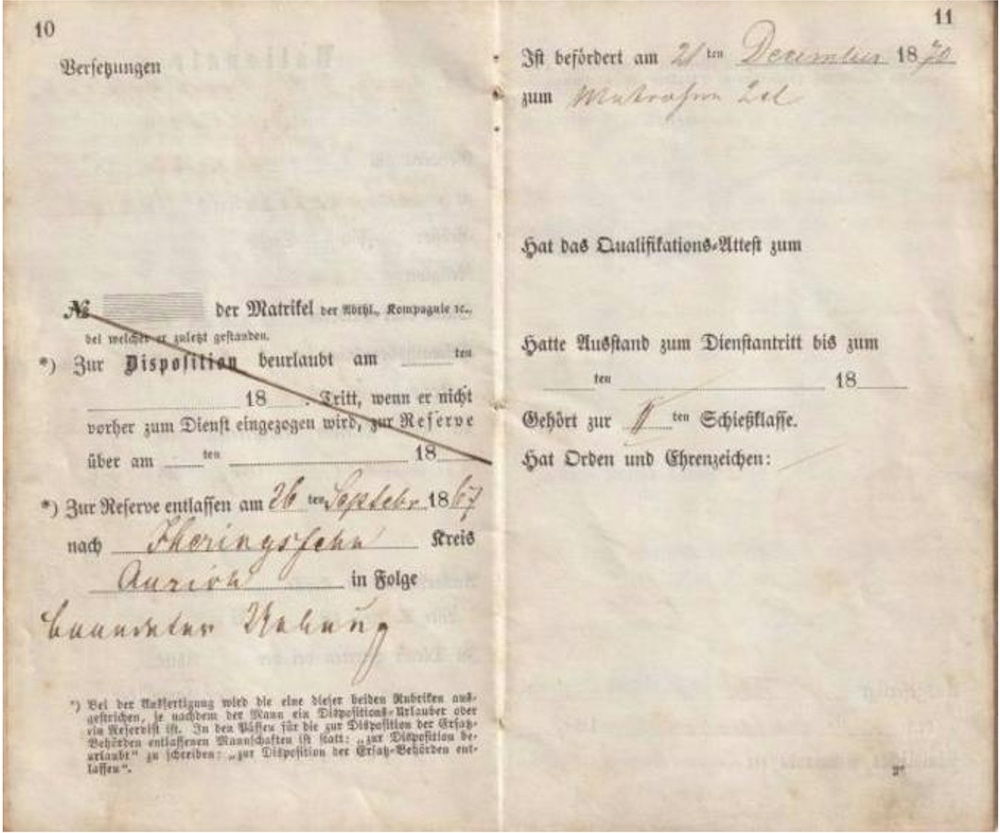 10
Versetzungen
№ der Matrikel der Abthl., Kompagnie ꝛc.,
bei welcher er zuletzt gestanden.
*) Zur Disposition beurlaubt am ten
18 Tritt, wenn er nicht
vorher zum Dienst eingezogen wird, zur Reserve
über am ten 18
*) Zur Reserve entlassen am 26 ten Septebr 1867
nach Iheringsfehn Kreis
Aurich in Folge
beendeter Uebung
*) Bei der Ausfertigung wird die eine dieser beiden Rubriken aus-
gestrichen, je nachdem der Mann ein Dispositions-Urlauber oder
ein Reservist ist. In den Pässen für die zur Disposition der Ersatz-
Behörden entlassenen Mannschaften ist statt: „zur Disposition be-
urlaubt“ zu schreiben: „zur Disposition der Ersatz-Behörden ent-
lassen“.
11
Ist befördert am 21 ten December 1870
zum Matrosen 2ter
Hat das Qualifikations-Attest zum
Hatte Ausstand zum Dienstantritt bis zum
ten 18
Gehört zur II ten Schießklasse.
Hat Orden und Ehrenzeichen:
2*